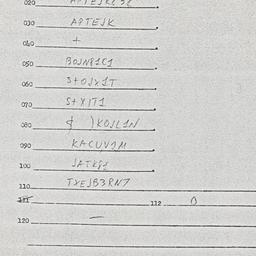 020
030 APTEJK
040 +
050 BOJN81C1
060 3+OJX1T
070 S+XIT1
080 )KOJL1N
090 KACUV2M
100 JATK81
110 TXEJB3RN7
111 112 0
120 —